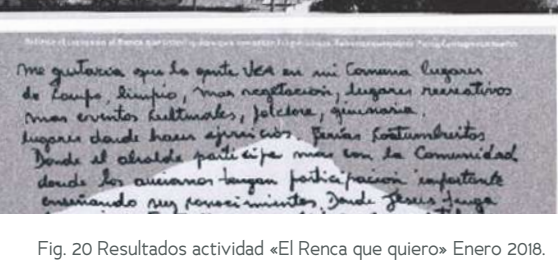 me gustaria que la gente VEA en mi Comuna lugares
de Campo, limpio, mas vegetación, lugares recreativos
mas eventos Culturales, folclore, gimnasia,
lugares donde hacer ejercicios. Ferias Costumbristas
Donde el alcalde participe mas con la Comunidad
donde los ancianos tengan participación importante
enseñando sus conocimientos. Donde Jesus tenga
Fig. 20 Resultados actividad «El Renca que quiero» Enero 2018.